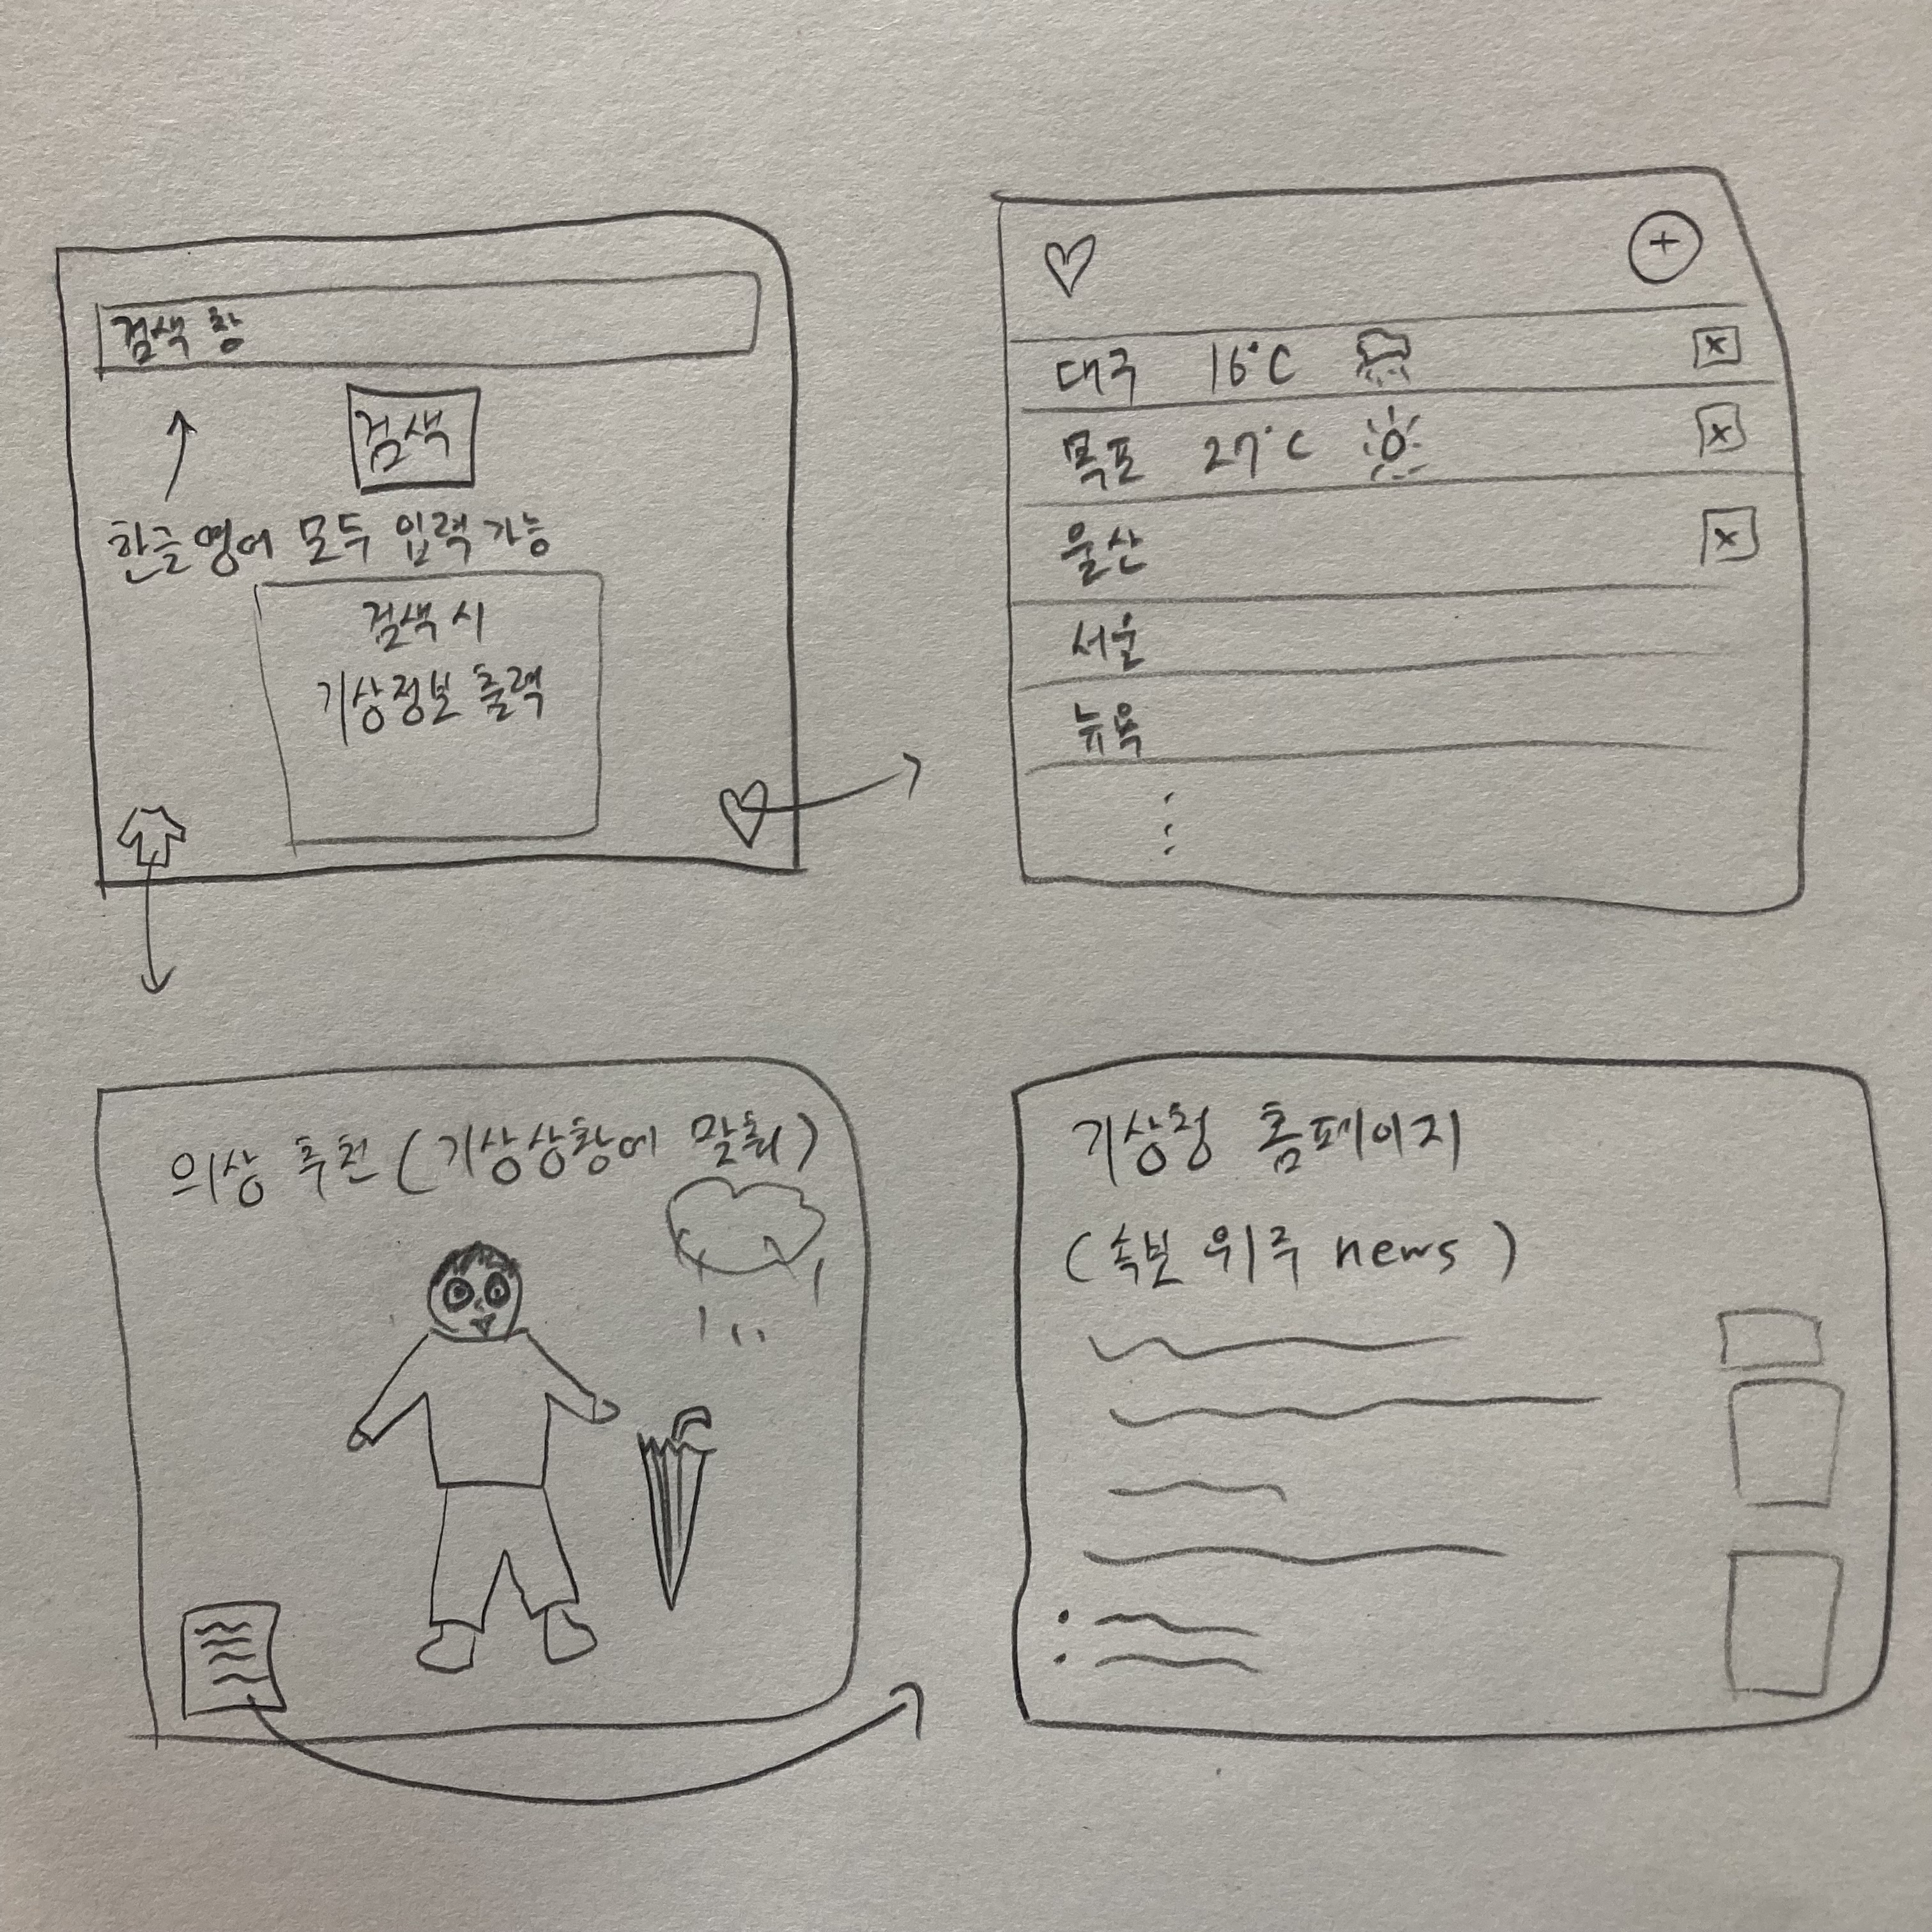 검색 창
검색
한글 영어 모두 입력 가능
검색 시
기상정보 출력
+
대구 16°C x
목포 27°C x
울산 x
서울
뉴욕
의상 추천 (기상상황에 맞춰)
기상청 홈페이지
(속보 위주 news)